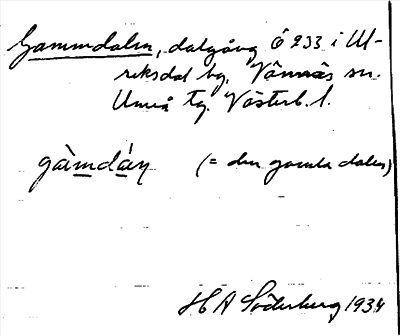 Gammdalen, dalgång Ö 233 i Ul-
riksdal by, Vännäs sn.
Umeå tg. Västerb. l.
gàmdáņ (= den gamla dalen)
H A Söderberg 1934